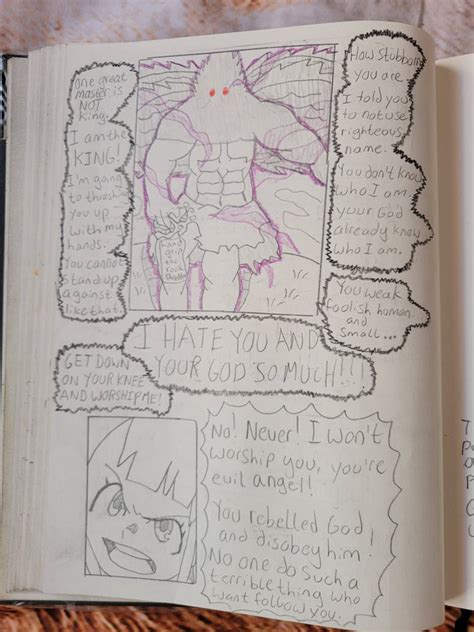 One graze
master is
NOT
king.
I am the
KING!
I'm going
to thrashing
you up
with my
hands.
You cannot
stand up
against
like that.
How stubborn
you are.
I told you
to not use
righteous
name.
You don't know
who I am,
your God
already know
who I am.
You weak
foolish human
and
small...
I HATE YOU AND
YOUR GOD SO MUCH!!!
GET DOWN
ON YOUR KNEE
AND WORSHIP ME!
No! Never! I won't
worship you, you're
evil angel!
You rebelled God
and disobey him!
No one do such a
terrible thing who
want follow you.